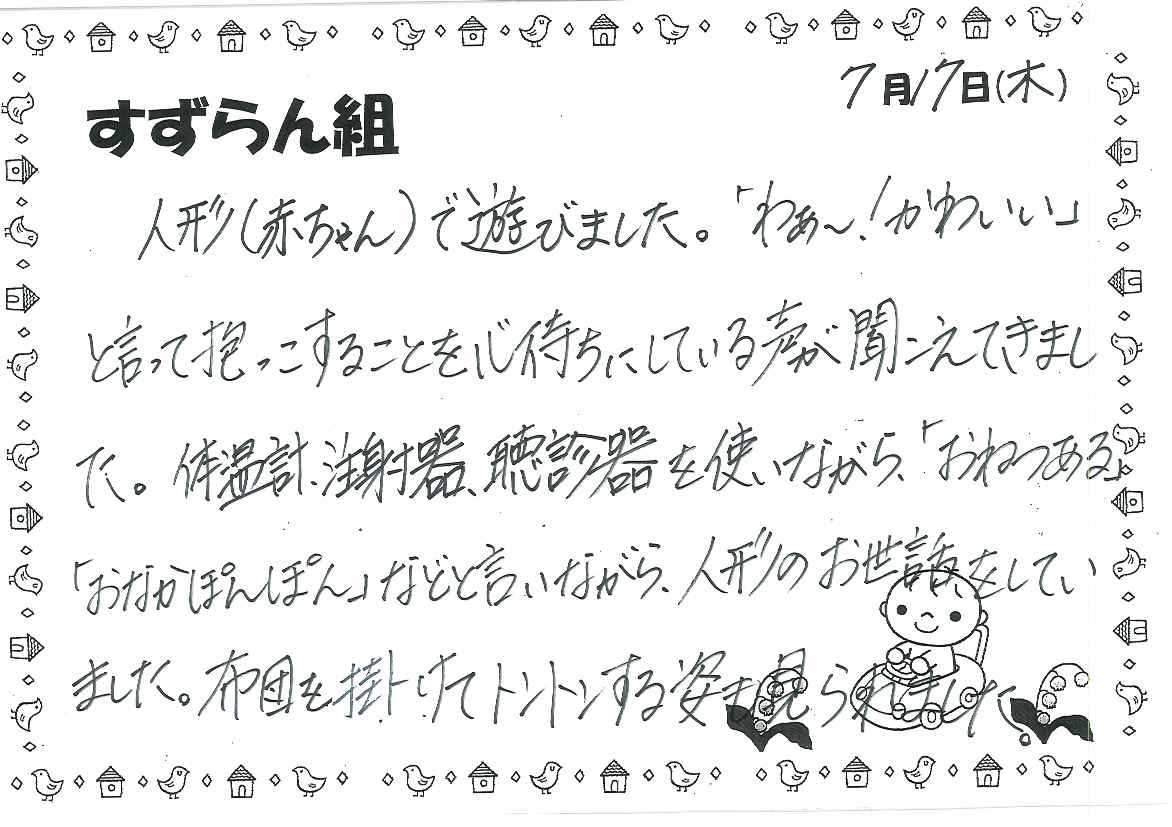 7月17日(木)
すずらん組
人形(赤ちゃん)で遊びました。「わぁ〜!かわいい」
と言って抱っこすることを心待ちにしている声が聞こえてきまし
た。体温計、注射器、聴診器を使いながら、「おねつある」
「おなかぽんぽん」などと言いながら、人形のお世話をしてい
ました。布団を掛けてトントンする姿も見られました。